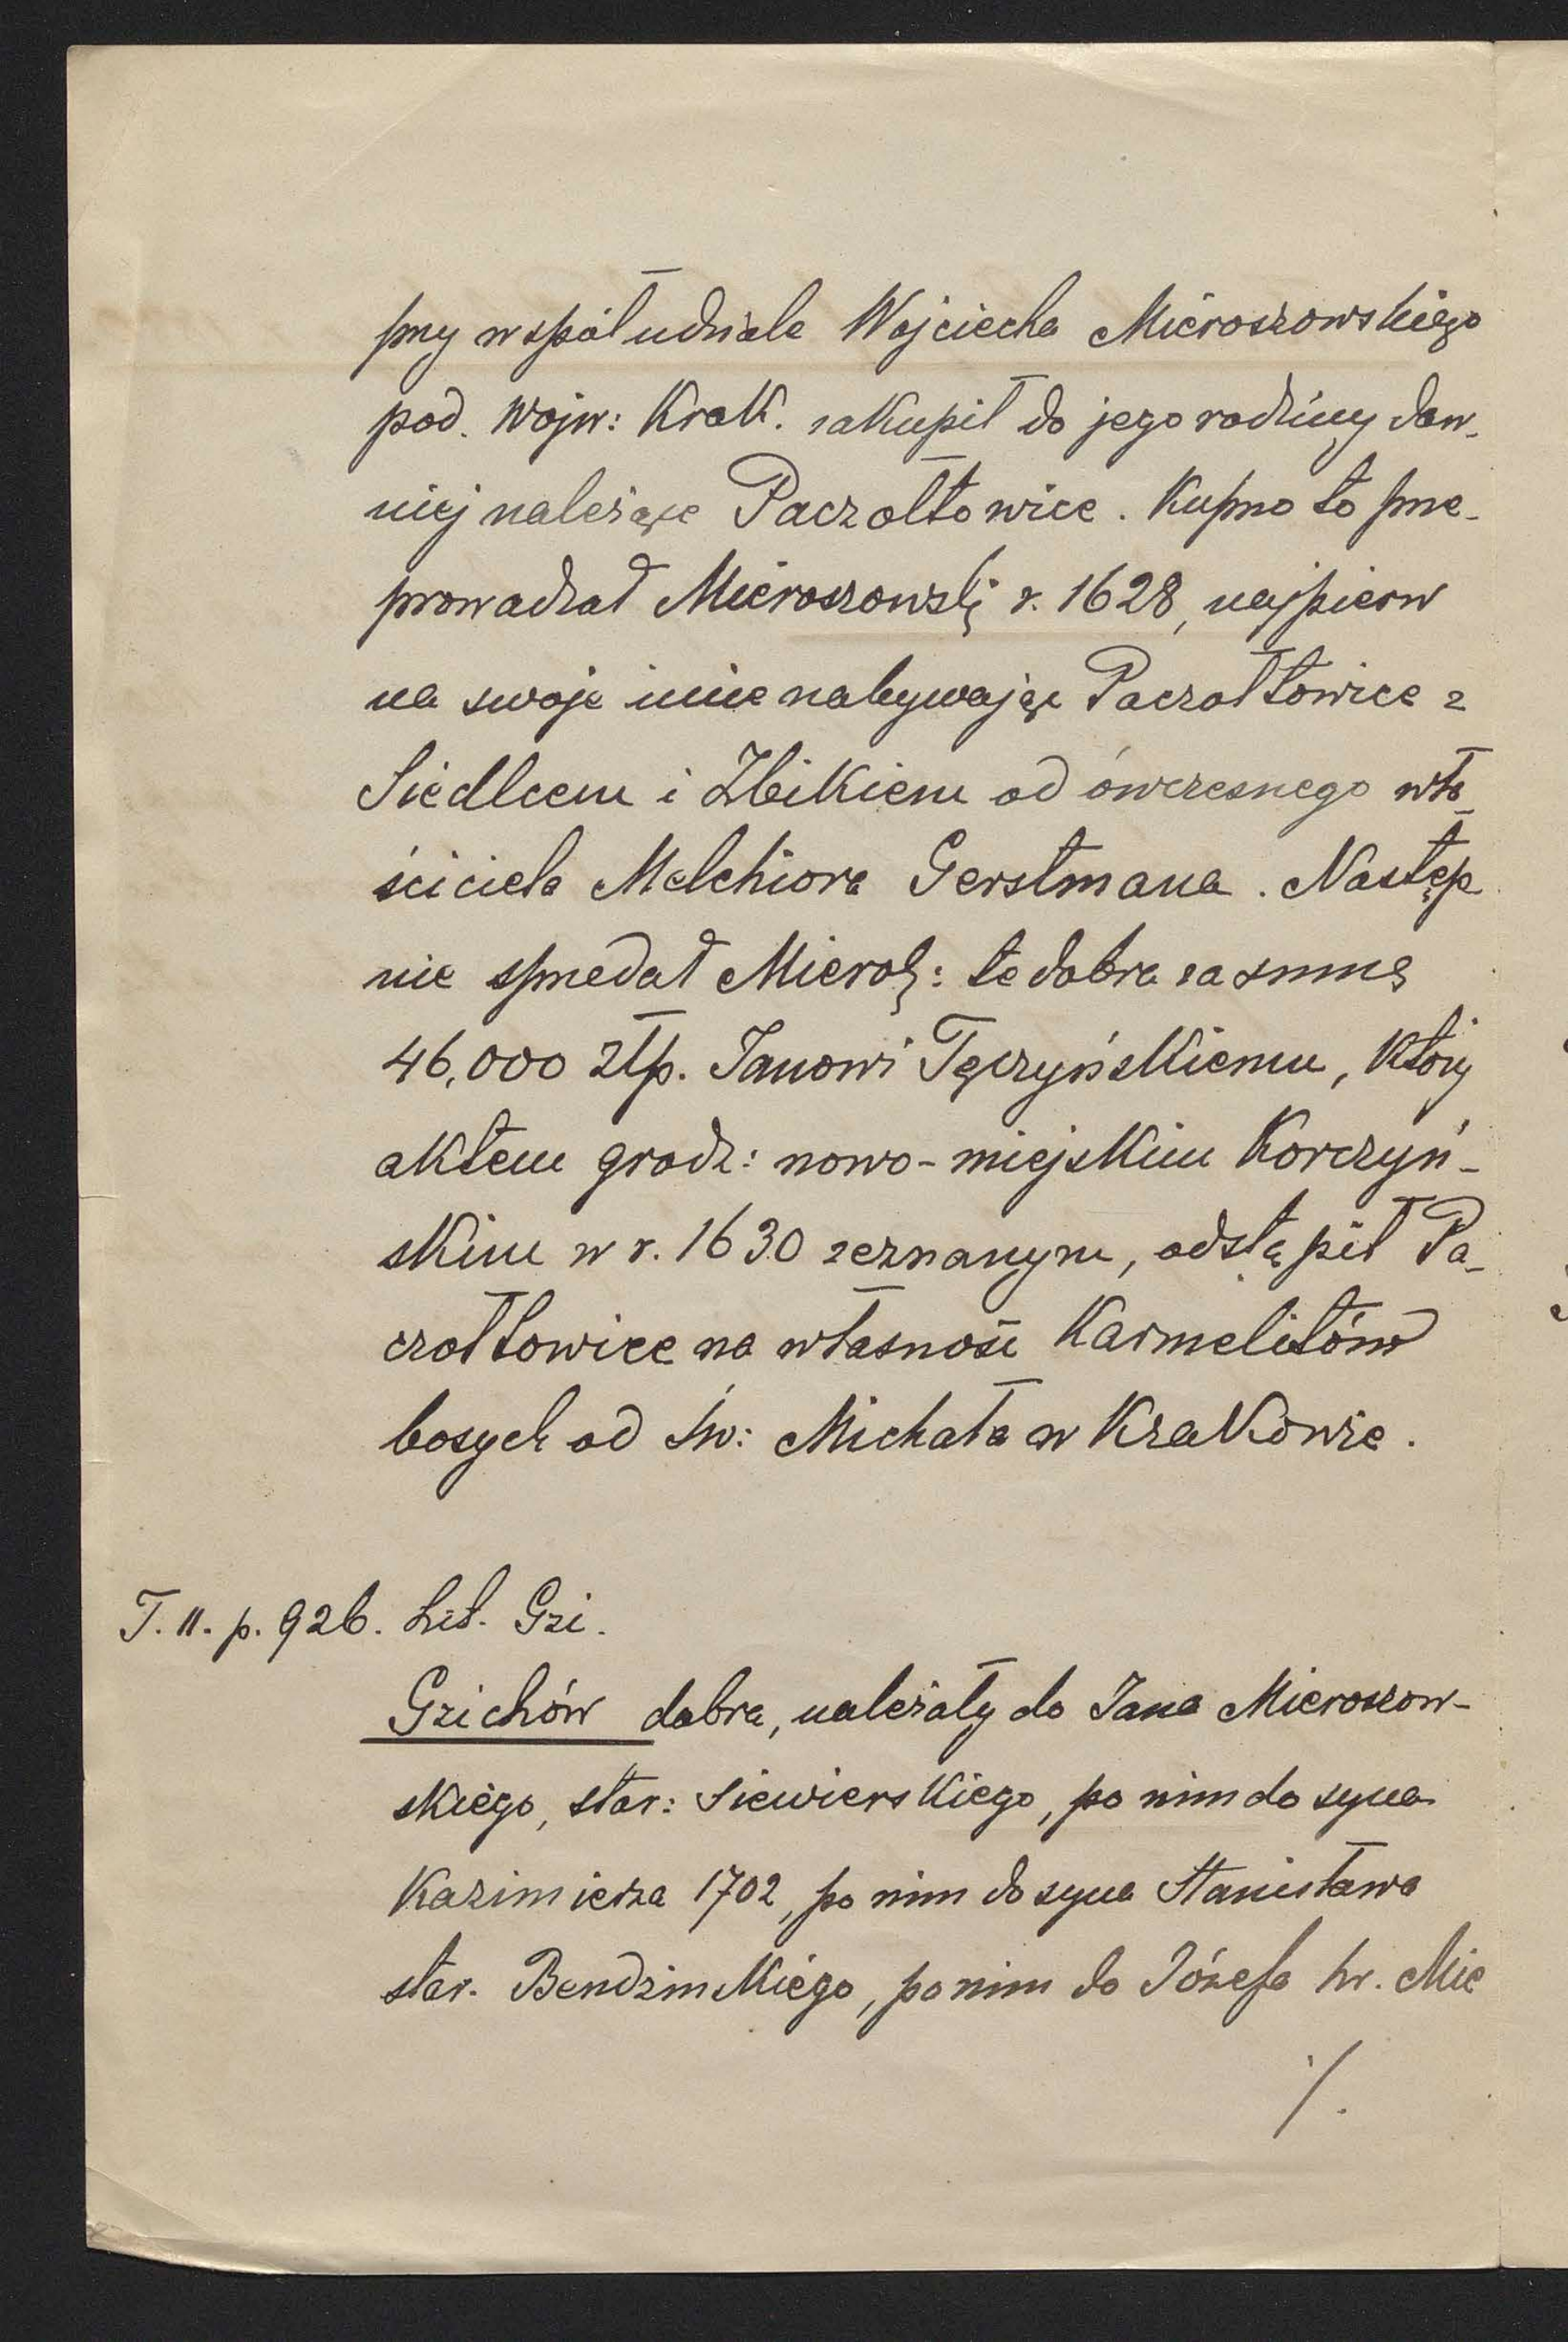 przy współudziale Wojciecha Mieroszowskiego
pod. Wojw: Krak. zakupił do jego rodziny daw-
niej należące Paczołtowice. Kupno to prze-
prowadzał Mieroszowski r. 1628, najpierw
na swoje imie nabywając Paczołtowice z
Siedlcem i Żbikiem od ówczesnego wła-
ściciela Melchiora Gerstmana. Następ
nie sprzedał Mierosz: te dobra za summę
46,000 złp. Janowi Tęczyńskiemu, który
aktem grodz: nowo-miejskim Korczyń-
skim w r. 1630 zeznanym, odstąpił Pa-
czołtowice na własność Karmelitów
bosych od św: Michała w Krakowie.
T. II. p. 926. Lit. Gzi.
Gzichów dobra, należały do Jana Mieroszow-
skiego, star: Siewierskiego, po nim do syna
Kazimierza 1702, po nim do syna Stanisława
star. Bendzinskiego, po nim do Józefa hr. Mie
./.